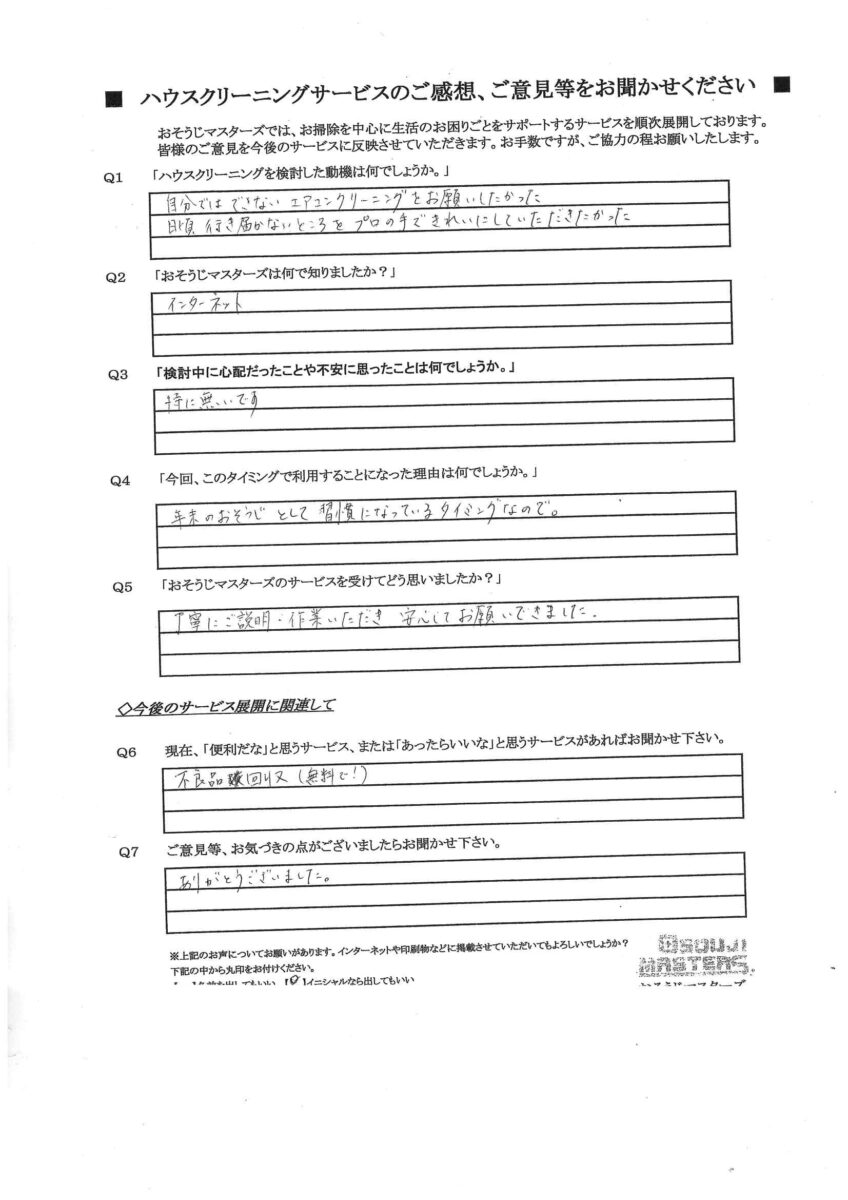 ■ ハウスクリーニングサービスのご感想、ご意見等をお聞かせください ■
おそうじマスターズでは、お掃除を中心に生活のお困りごとをサポートするサービスを順次展開しております。
皆様のご意見を今後のサービスに反映させていただきます。お手数ですが、ご協力の程お願いしたします。
Q1 「ハウスクリーニングを検討した動機は何でしょうか。」
自分では できない エアコンクリーニングをお願いしたかった
日頃 行き届かないところを プロの手できれいにしていただきたかった
Q2 「おそうじマスターズは何で知りましたか？」
インターネット
Q3 「検討中に心配だったことや不安に思ったことは何でしょうか。」
特に無いです
Q4 「今回、このタイミングで利用することになった理由は何でしょうか。」
年末のおそうじ として 習慣になっているタイミングなので。
Q5 「おそうじマスターズのサービスを受けてどう思いましたか？」
丁寧にご説明・作業いただき 安心してお願いできました.
◇今後のサービス展開に関連して
Q6 現在、「便利だな」と思うサービス、または「あったらいいな」と思うサービスがあればお聞かせ下さい。
不良品回収(無料で!)
Q7 ご意見等、お気づきの点がございましたらお聞かせ下さい。
ありがとうございました。
※上記のお声についてお願いがあります。インターネットや印刷物などに掲載させていただいてもよろしいでしょうか？
下記の中から丸印をお付けください。
【 】名前を出してもいい 【○】イニシャルなら出してもいい
OSOUJI
MASTERS.
おそうじマスターズ